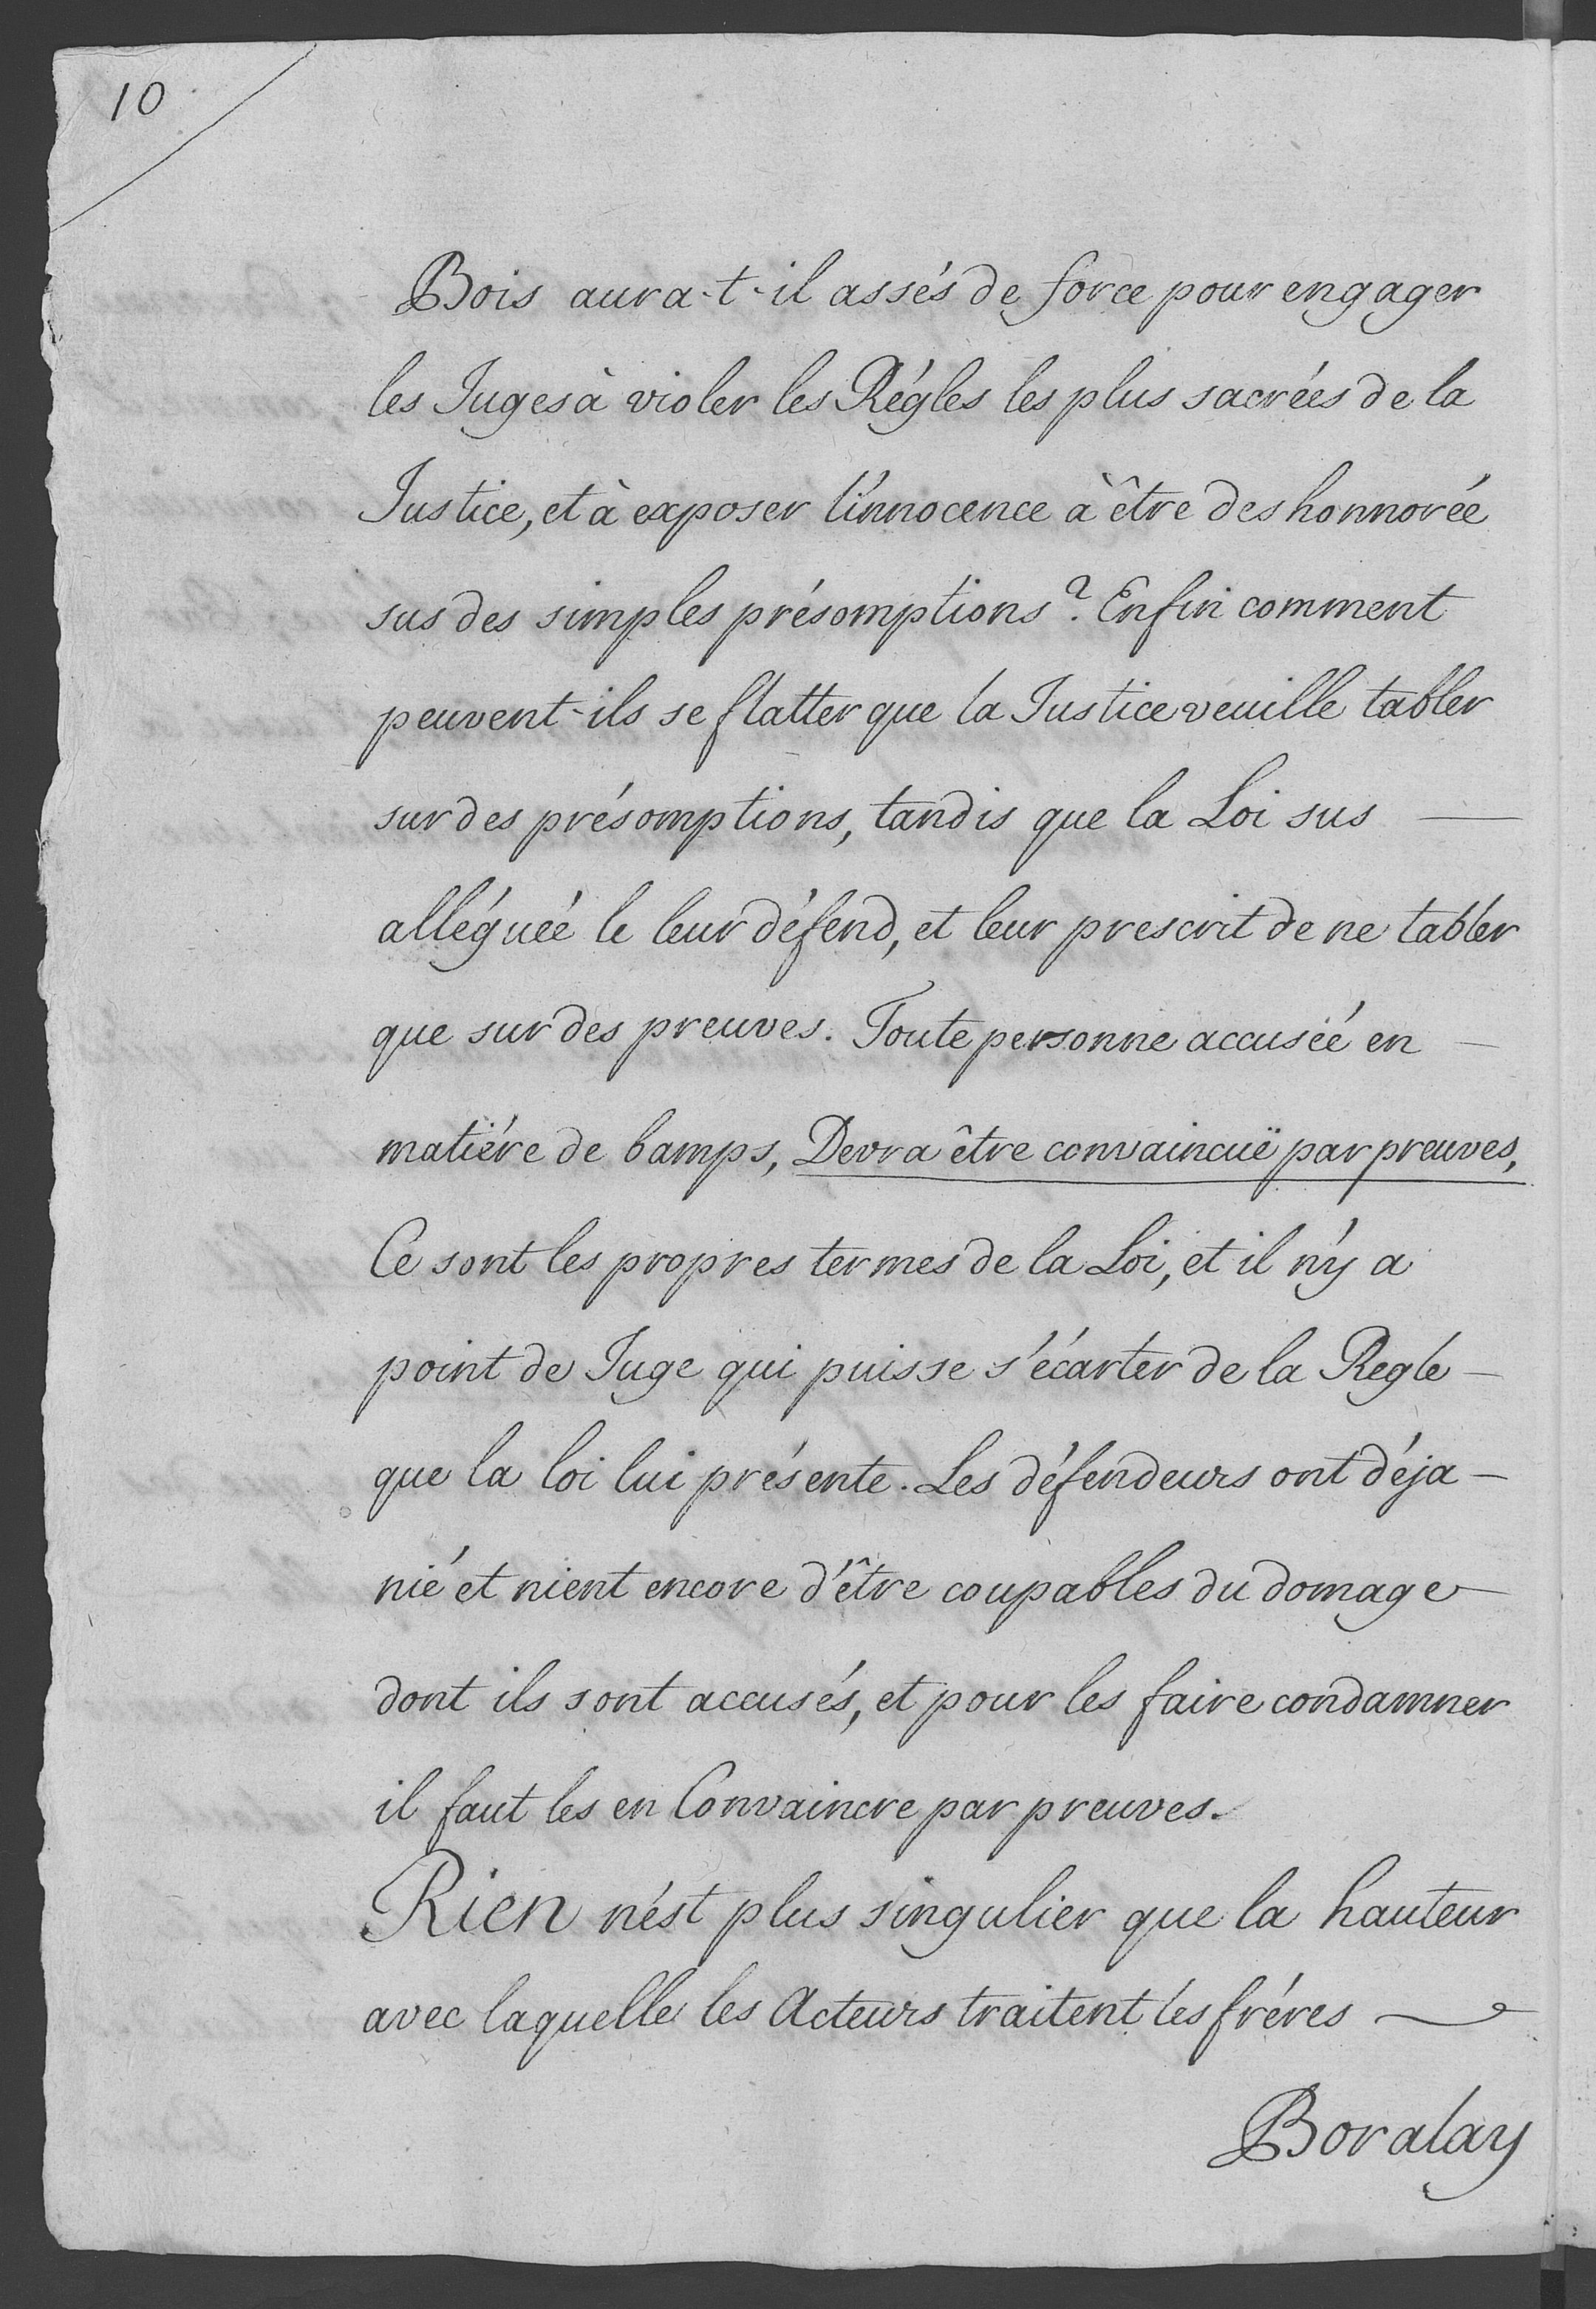 10
Bois aura-t-il assés de force pour engager
les Juges à violer les Régles les plus sacrées de la
Justice, et à exposer l'innocence à être deshonnorée
sus des simples présomptions? Enfin comment
peuvent-ils se flatter que la Justice veuille tabler
sur des présomptions, tandis que la Loi sus
alléguée le leur défend, et leur prescrit de ne tabler
que sur des preuves. Toute personne accusée en
matiére de bamps, Devra être convaincuë par preuves,
Ce sont les propres termes de la Loi, et il n'y a
point de Juge qui puisse s'écarter de la Regle
que la loi lui présente. Les défendeurs ont déja
nié et nient encore d'être coupables du domage
dont ils sont accusés, et pour les faire condamner
il faut les en Convaincre par preuves.
Rien n'ést plus singulier que la hauteur
avec laquelle les Acteurs traitent les fréres
Boralay